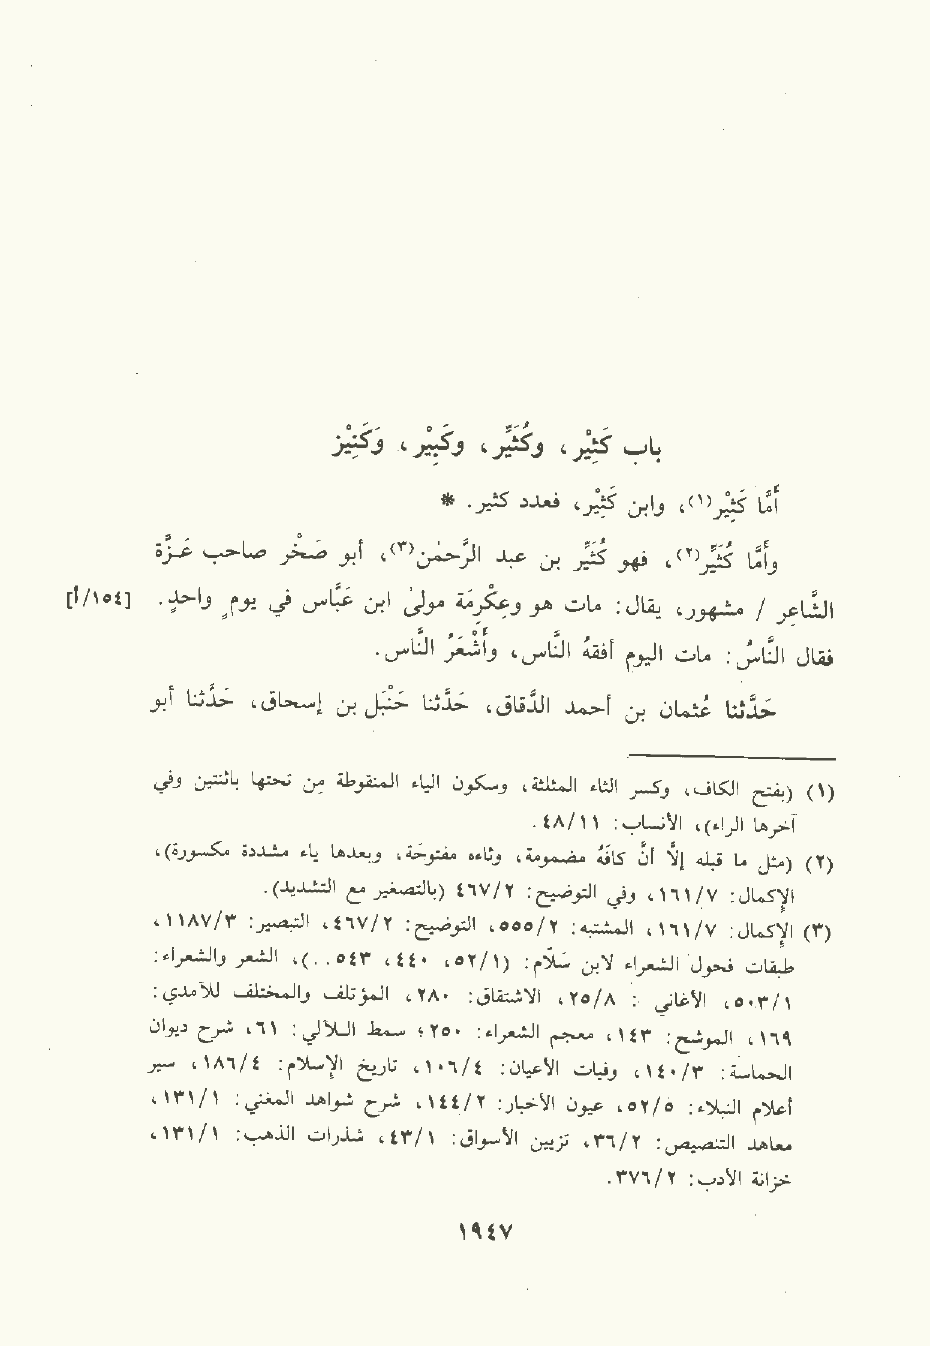 باب كَثِيْر، وكُثَيِّر، وكَبِيْر، وَكَنِيْز
أَمَّا كَثِيْر(١)، وابن كَثِيْر، فعدد كثير. *
وأَمَّا كُثَيِّر(٢)، فهو كُثَيِّر بن عبد الرَّحمٰن(٣)، أبو صَخْر صاحب عَزَّة
الشَّاعِر / مشهور، يقال: مات هو وعِكْرِمَة مولىٰ ابن عَبَّاس في يومٍ واحدٍ. [١٥٤/أ]
فقال النَّاسُ: مات اليوم أفقهُ النَّاس، وأَشْعَرُ النَّاس.
حَدَّثنا عُثمان بن أحمد الدَّقاق، حَدَّثنا حَنْبَل بن إسحاق، حَدَّثنا أبو
(١) (بفتح الكاف، وكسر الثاء المثلثة، وسكون الياء المنقوطة مِن تحتها باثنتين وفي
آخرها الراء)، الأنساب: ٤٨/١١.
(٢) (مثل ما قبله إلَّا أنَّ كافَهُ مضمومة، وثاءه مفتوحَة، وبعدها ياء مشددة مكسورة)،
الإكمال: ١٦١/٧، وفي التوضيح: ٤٦٧/٢ (بالتصغير مع التشديد).
(٣) الإكمال: ١٦١/٧، المشتبه: ٥٥٥/٢، التوضيح: ٤٦٧/٢، التبصير: ١١٨٧/٣،
طبقات فحول الشعراء لابن سَلّام: (٥٢/١، ٤٤٠، ٥٤٣..)، الشعر والشعراء:
٥٠٣/١، الأغاني: ٢٥/٨، الاشتقاق: ٢٨٠، المؤتلف والمختلف للآمدي:
١٦٩، الموشح: ١٤٣، معجم الشعراء: ٢٥٠، سمط الآلي: ٦١، شرح ديوان
الحماسة: ١٤٠/٣، وفيات الأعيان: ١٠٦/٤، تاريخ الإسلام: ١٨٦/٤، سير
أعلام النبلاء: ٥٢/٥، عيون الأخبار: ١٤٤/٢، شرح شواهد المغني: ١٣١/١،
معاهد التنصيص: ٣٦/٢، تزيين الأسواق: ٤٣/١، شذرات الذهب: ١٣١/١،
خزانة الأدب: ٣٧٦/٢.
١٩٤٧